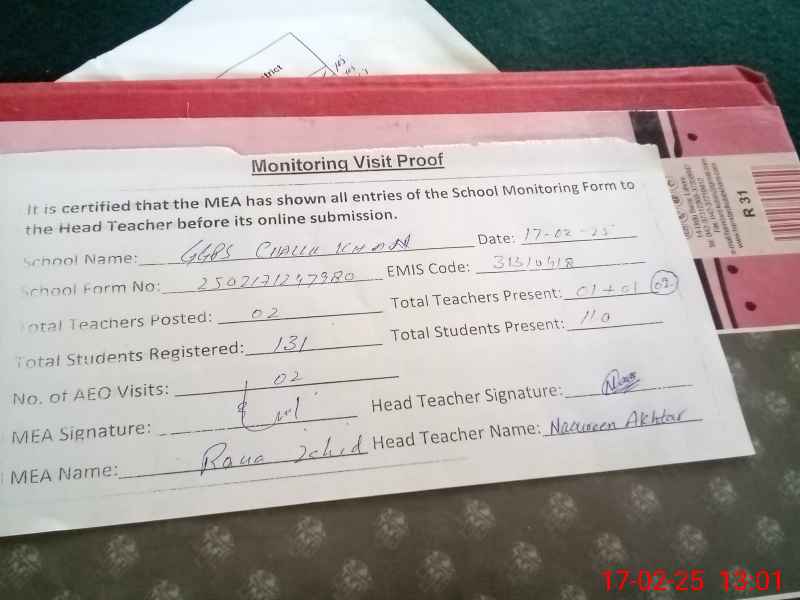 trict
Monitoring Visit Proof
It is certified that the MEA has shown all entries of the School Monitoring Form to
the Head Teacher before its online submission.
School Name: GGPS Date: 17-02-25
School Form No: EMIS Code:
Total Teachers Posted: 02 Total Teachers Present: 01+01 02
Total Students Registered: 131 Total Students Present: 110
No. of AEO Visits: 02
MEA Signature: Head Teacher Signature:
MEA Name: Rana Head Teacher Name: Naureen Akhtar
R 31
17-02-25 13:01